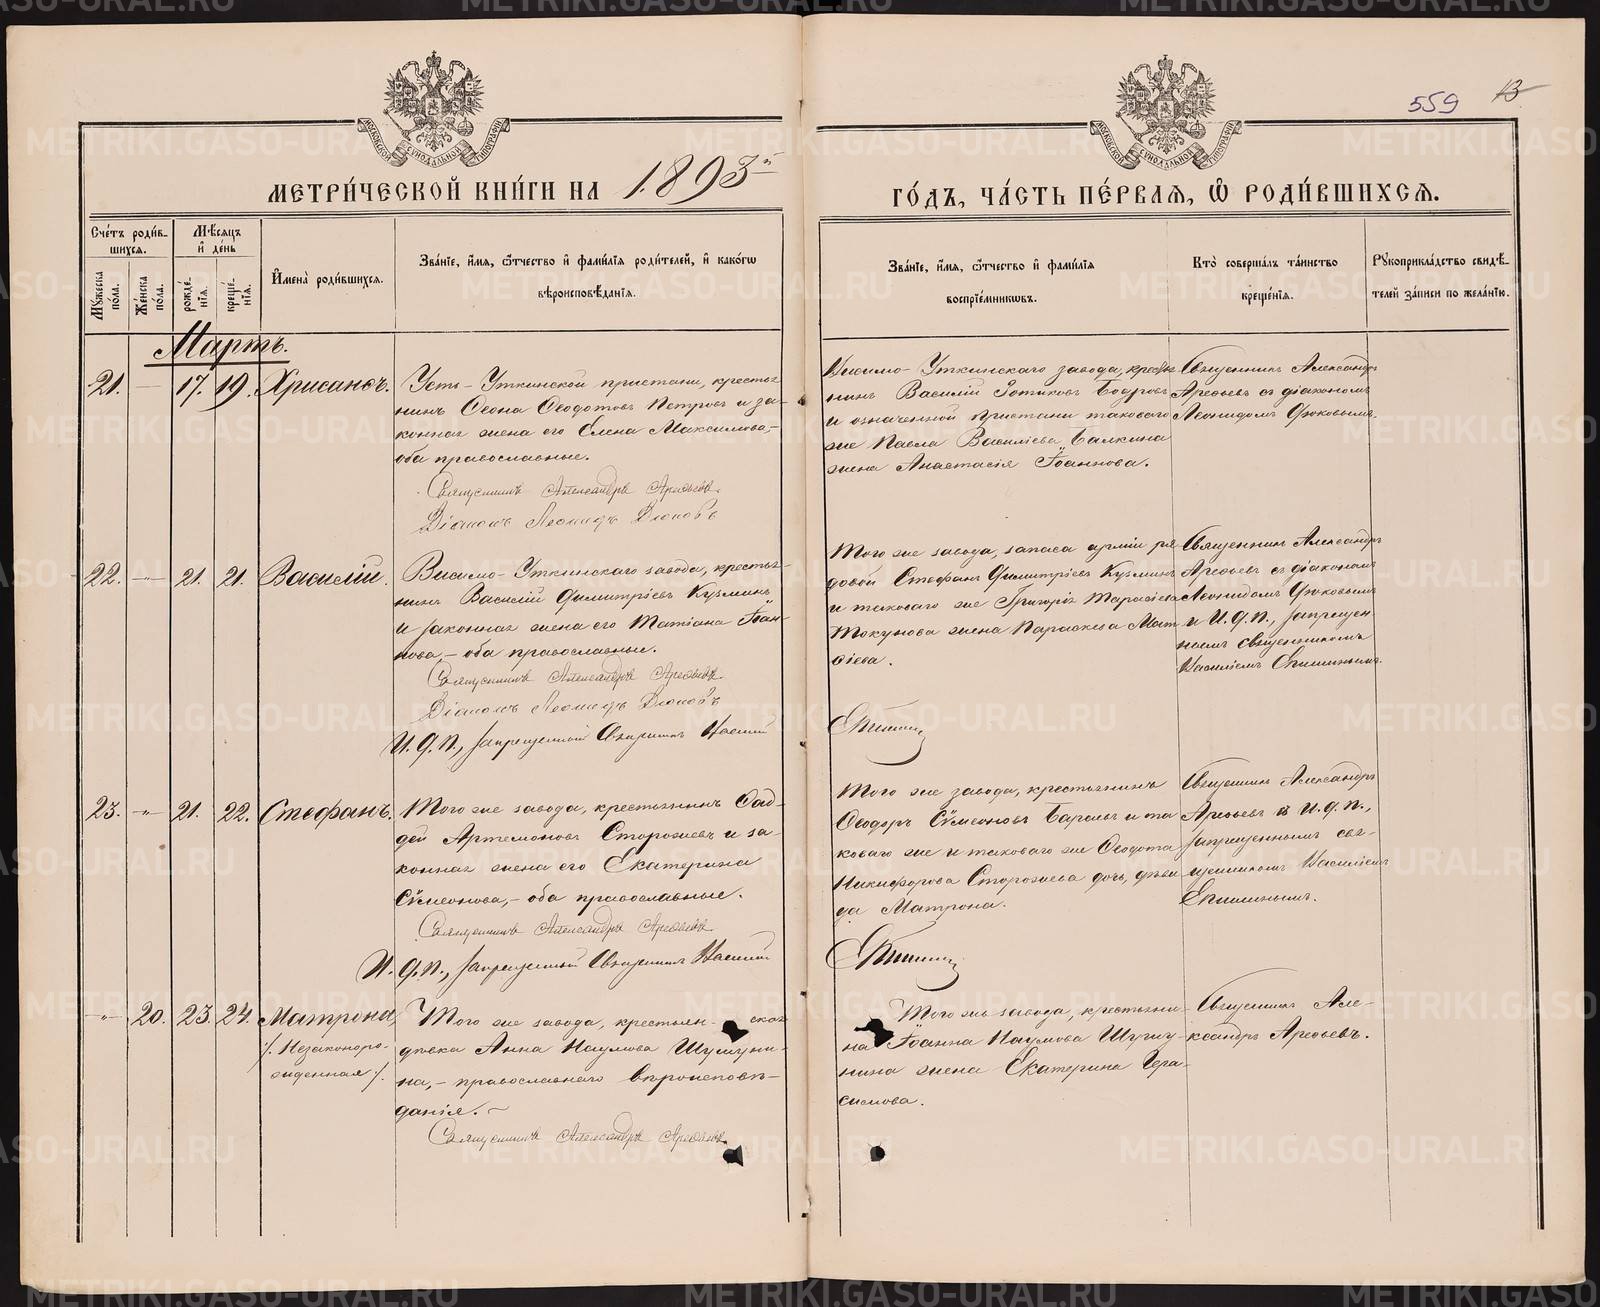 559 13
МОСКОВСКОЙ СѴНОДАЛЬНОЙ ТИПОГРАФІИ
МОСКОВСКОЙ СѴНОДАЛЬНОЙ ТИПОГРАФІИ
МЕТРИ́ЧЕСКОЙ КНИ́ГИ НА 1893й
ГО́ДЪ, ЧА́СТЬ ПЕ́РВАЯ, Ѡ РОДИ́ВШИХСЯ.
Сче́тъ роди́в-
шихся.
Мѣ́сяцъ
и҆ де́нь
Мꙋ́жеска
по́ла.
Же́нска
по́ла.
рожде́-
нїя.
креще́-
нїя.
И҆мена̀ роди́вшихся.
Зва́нїе, и҆́мя, ѻ҆́тчество и҆ фами́лїя роди́телей, и҆ како́гѡ
вѣроисповѣ́данїя.
Зва́нїе, и҆́мя, ѻ҆́тчество и҆ фами́лїя
воспрїе́мникѡвъ.
Кто̀ соверша́лъ та́инство
креще́нїя.
Рꙋкоприкла́дство свидѣ́-
телей за́писи по жела́нїю.
Мартъ.
21. — 17. 19. Хрисанѳъ.
Усть-Уткинской пристани, крестья-
нинъ Ѳеона Ѳеодотовъ Петровъ и за-
конная жена его Елена Максимова,-
оба православные.
Священникъ Александръ Арефьевъ
Діаконъ Леонидъ Дюковъ
Висимо-Уткинскаго завода, крестья-
нинъ Василій Зотиковъ Бодровъ
и означенной пристани таковаго
же Павла Василіева Балкина
жена Анастасія Іоаннова.
Священникъ Александръ
Арефьевъ съ діакономъ
Леонидомъ Дюковымъ.
22. -„- 21. 21. Василій.
Висимо-Уткинскаго завода, крестья-
нинъ Василій Димитріевъ Кузминъ
и законная жена его Татіана Іоан-
нова,- оба православные.
Священникъ Александръ Арефьевъ
Діаконъ Леонидъ Дюковъ
И. д. п., запрещенный Священникъ Василій
Того же завода, запаса арміи ря-
довой Стефанъ Димитріевъ Кузминъ
и таковаго же Григорія Тарасіева
Токунова жена Параскева Мат-
ѳіева.
Епишинъ
Священникъ Александръ
Арефьевъ съ діакономъ
Леонидомъ Дюковымъ
и И. д. п., запрещен-
нымъ священникомъ
Василіемъ Епишинымъ.
23. -„- 21. 22. Стефанъ.
Того же завода, крестьянинъ Ѳад-
дей Артемоновъ Сторожевъ и за-
конная жена его Екатерина
Сѵмеонова,- оба православные.
Священникъ Александръ Арефьевъ
И. д. п., запрещенный Священникъ Василій
Того же завода, крестьянинъ
Ѳеодоръ Сѵмеоновъ и та-
коваго же и таковаго же Ѳеодота
Никифорова Сторожева дочь, дѣви-
ца Матрона.
Епишинъ
Священникъ Александръ
Арефьевъ и И. д. п.,
запрещеннымъ свя-
щенникомъ Василіемъ
Епишинымъ.
-„- 20. 23. 24. Матрона,
/. Незаконоро-
жденная ./.
Того же завода, крестьян- ская
дѣвка Анна Наумова Шушуни-
на,- православнаго вѣроисповѣ-
данія.
Священникъ Александръ Арефьевъ
Того же завода, крестьяни-
на Іоанна Наумова Шушу-
нина жена Екатерина Гера-
симова.
Священникъ Але-
ксандръ Арефьевъ.
METRIKI.GASO-URAL.RU